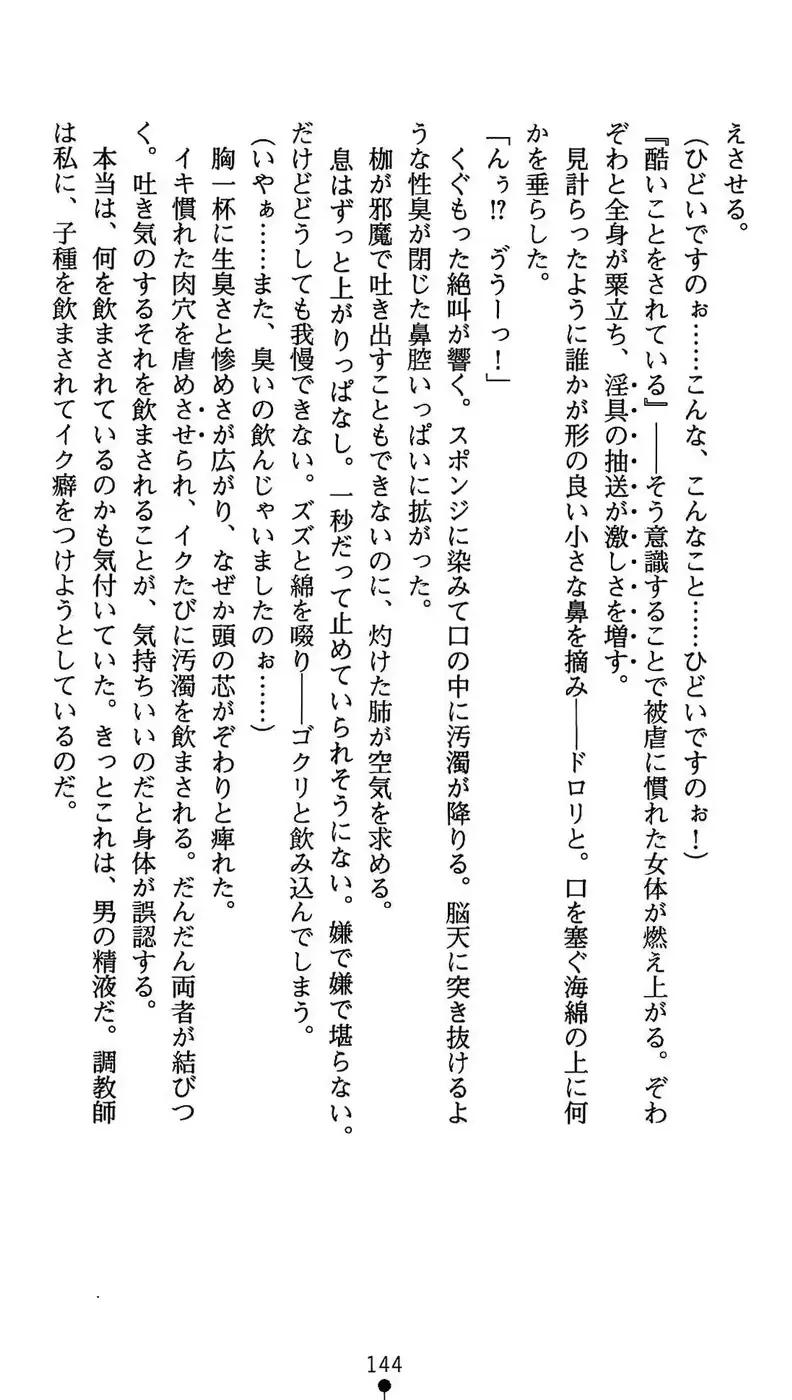 えさせる。
（ひどいですのぉ……こんな、こんなこと……ひどいですのぉ！）
『酷いことをされている』――そう意識することで被虐に慣れた女体が燃え上がる。ぞわ
ぞわと全身が粟立ち、淫具の抽送が激しさを増す。
見計らったように誰かが形の良い小さな鼻を摘み――ドロリと。口を塞ぐ海綿の上に何
かを垂らした。
「んぅ!?　ゔうーっ！」
くぐもった絶叫が響く。スポンジに染みて口の中に汚濁が降りる。脳天に突き抜けるよ
うな性臭が閉じた鼻腔いっぱいに拡がった。
枷が邪魔で吐き出すこともできないのに、灼けた肺が空気を求める。
息はずっと上がりっぱなし。一秒だって止めていられそうにない。嫌で嫌で堪らない。
だけどどうしても我慢できない。ズズと綿を啜り――ゴクリと飲み込んでしまう。
（いやぁ……また、臭いの飲んじゃいましたのぉ……）
胸一杯に生臭さと惨めさが広がり、なぜか頭の芯がぞわりと痺れた。
イキ慣れた肉穴を虐めさせられ、イクたびに汚濁を飲まされる。だんだん両者が結びつ
く。吐き気のするそれを飲まされることが、気持ちいいのだと身体が誤認する。
本当は、何を飲まされているのかも気付いていた。きっとこれは、男の精液だ。調教師
は私に、子種を飲まされてイク癖をつけようとしているのだ。
144